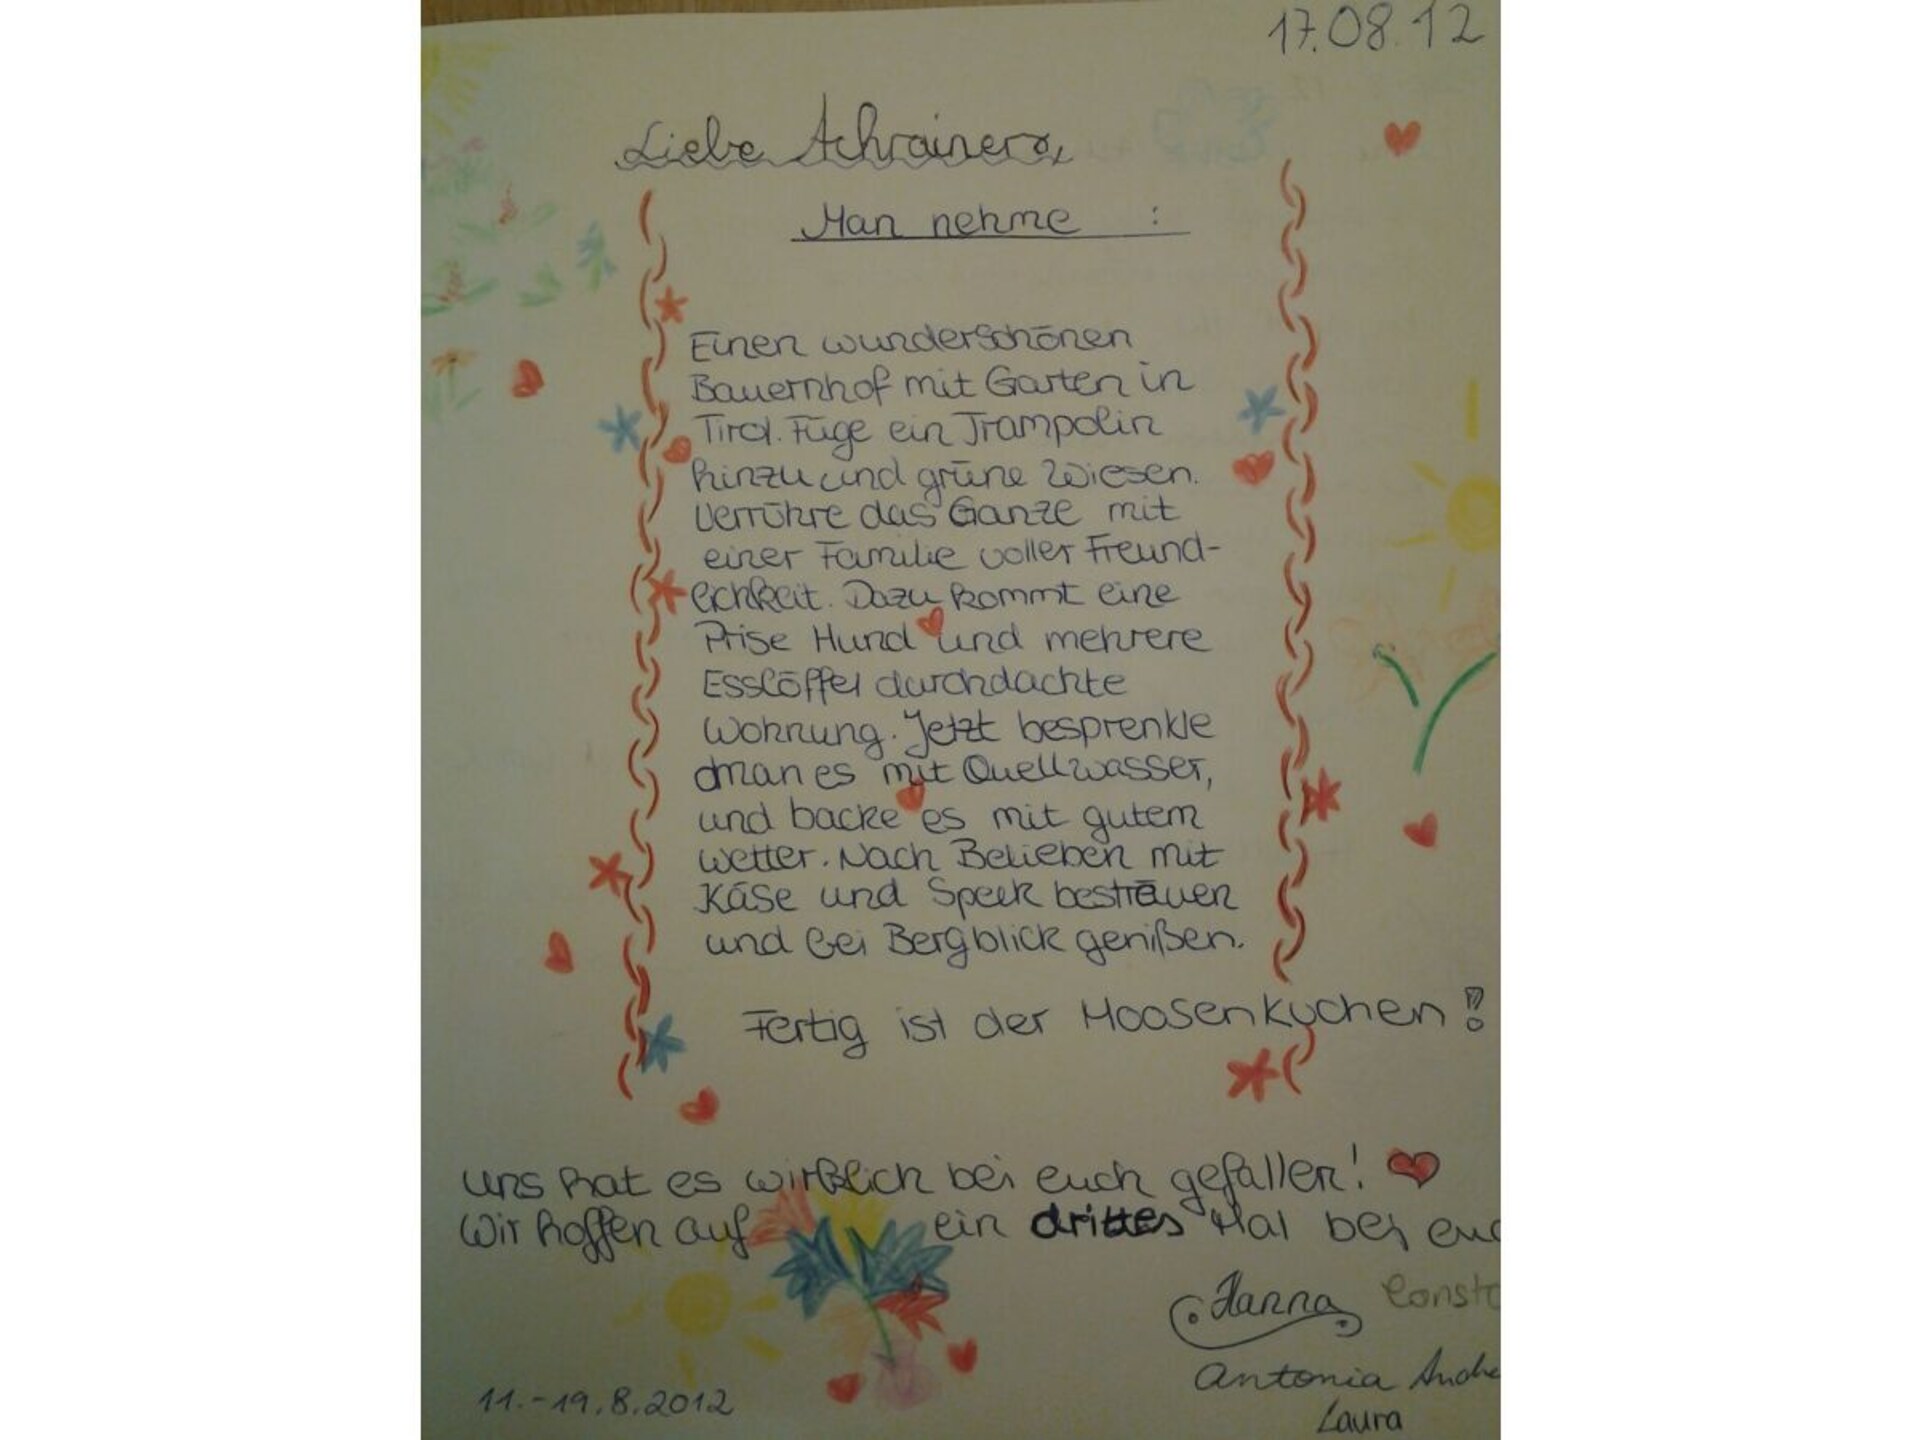 17.08.12
Liebe Achrainers,
Man nehme :
Einen wunderschönen
Bauernhof mit Garten in
Tirol. Füge ein Trampolin
hinzu und grüne Wiesen.
Verrühre das Ganze mit
einer Familie voller Freund-
lichkeit. Dazu kommt eine
Prise Hund und mehrere
Esslöffel durchdachte
Wohnung. Jetzt besprenkle
man es mit Quellwasser,
und backe es mit gutem
Wetter. Nach Belieben mit
Käse und Speck bestreuen
und bei Bergblick genißen.
Fertig ist der Moosenkuchen!
Uns hat es wirklich bei euch gefallen!
Wir hoffen auf ein drittes Mal bei euc
Hanna Consta
Antonia Andre
Laura
11.-19.8.2012